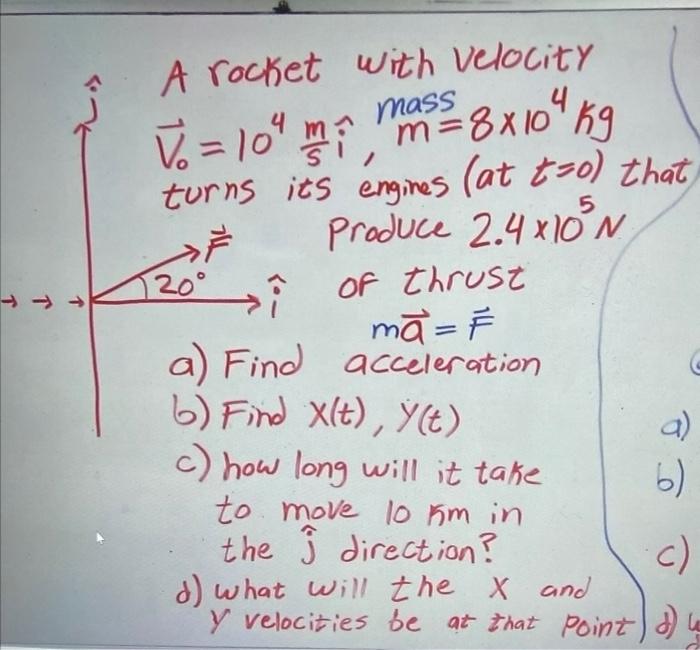 A rocket with velocity
ĵ
V⃗₀ = 10⁴ m/s î, mass m = 8 × 10⁴ kg
turns its engines (at t=0) that
F⃗ Produce 2.4 × 10⁵ N
20° î of thrust
ma⃗ = F⃗
a) Find acceleration
b) Find X(t), Y(t)
c) how long will it take
to move 10 km in
the ĵ direction?
d) what will the X and
Y velocities be at that Point
a)
b)
c)
d)